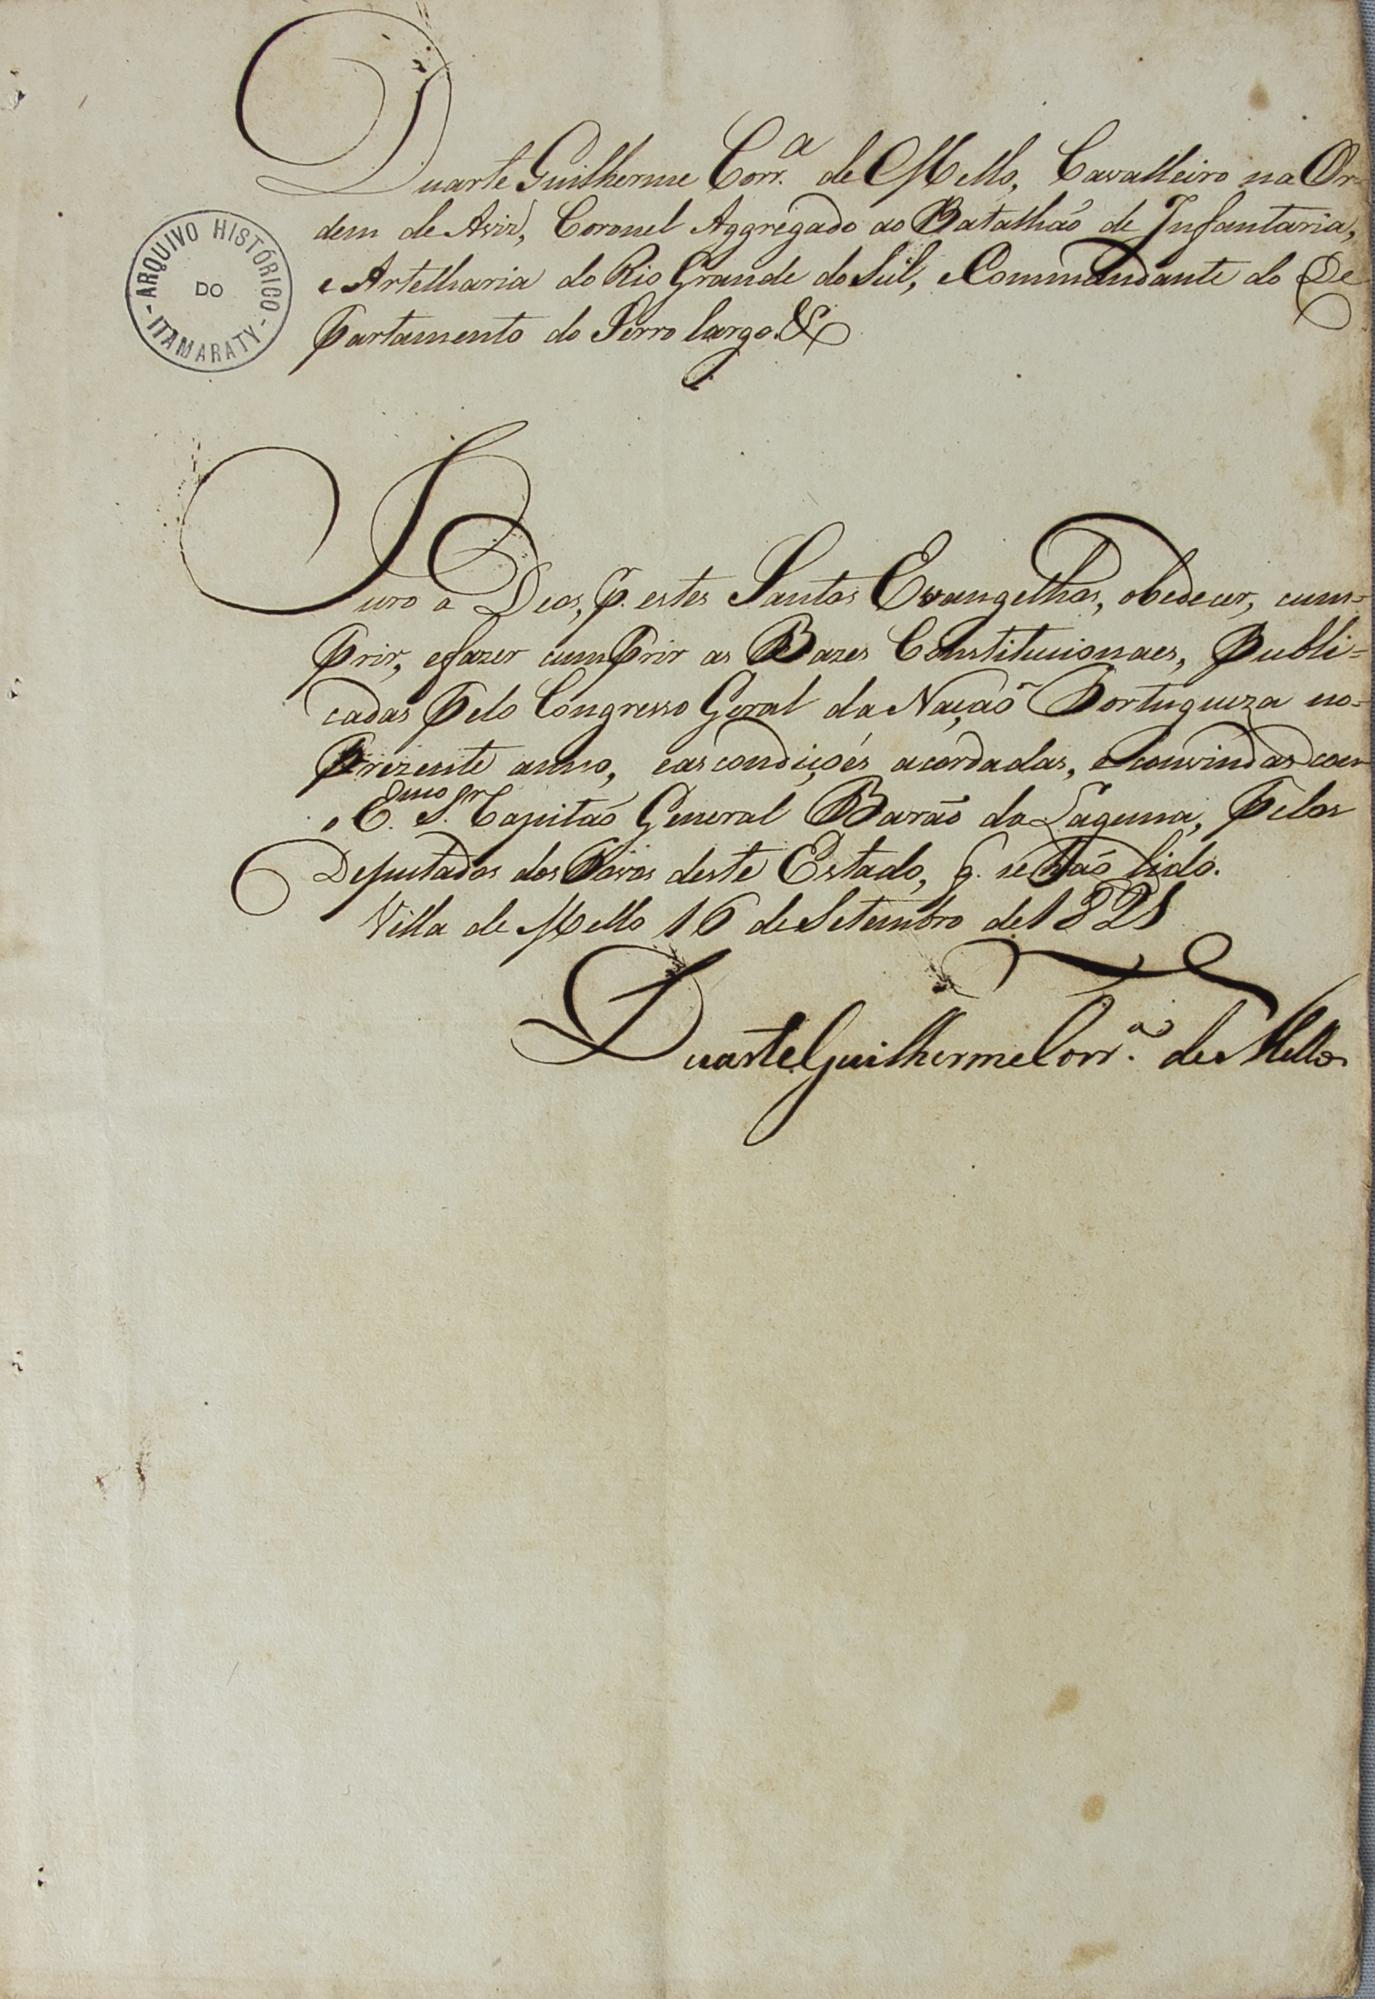 Duarte Guilherme Corr.ª de Mello, Cavalleiro na Or-
dem de Aviz, Coronel Aggregado ao Batalhão de Infantaria,
e Artelharia do Rio Grande do Sul, e Commandante do De
partamento do Serro largo. &
ARQUIVO HISTÓRICO
DO
- ITAMARATY -
Juro a Deos, p. estes Santos Evangelhos, obedecer, cum=
prir, e fazer cumprir as Bazes Constitucionaes, publi=
cadas pelo Congresso Geral da Nação Portugueza no=
prezente anno, e as condições acordadas, e convindas com
o E.mo Sr. Capitão General Barão da Laguna, pelos
Deputados dos Povos deste Estado, q. se hão lido.
Villa de Mello 16 de Setembro de 1821
Duarte Guilherme Corr.ª de Mello